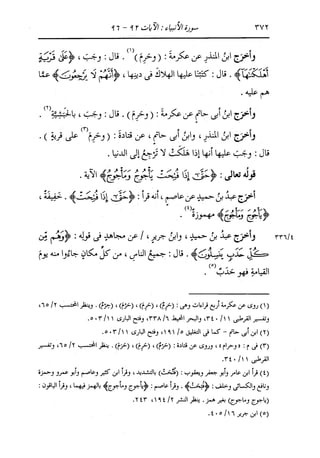 ٣٧٢ سورة الأنبياء : الآيات ٩٢ - ٩٦
وأخرج ابنُ المنذرِ عن عكرمةَ : (وحَرِمَ)(١). قال : وجَب ، ﴿عَلَىٰ قَرْيَةٍ
أَهْلَكْنَٰهَا﴾. قال : كتَبْنا عليها الهلاكَ فى دينِها ، ﴿أَنَّهُمْ لَا يَرْجِعُونَ﴾ عمَّا
هم عليه .
وأخرج ابنُ أبى حاتمٍ عن عكرمةَ : (وحَرِمَ). قال : وجَب ، بالحبَشيَّةِ(٢).
وأخرج ابنُ المنذرِ ، وابنُ أبى حاتمٍ ، عن قتادةَ : (وحَرِمَ(٣) على قريةٍ).
قال : وجَب عليها أنها إذا هلَكتْ لا تَرجِعُ إلى الدنيا .
قولُه تعالى : ﴿حَتَّىٰٓ إِذَا فُتِحَتْ يَأْجُوجُ وَمَأْجُوجُ﴾ الآية .
أخرج عبدُ بنُ حميدٍ عن عاصمٍ ، أنه قرأ : ﴿حَتَّىٰٓ إِذَا فُتِحَتْ﴾. خفيفةً ،
﴿يَأْجُوجُ وَمَأْجُوجُ﴾ مهموزةً(٤).
٣٣٦/٤ وأخرج عبدُ بنُ حميدٍ ، وابنُ جريرٍ ، / عن مجاهدٍ فى قولِه : ﴿وَهُم مِّن
كُلِّ حَدَبٍ يَنسِلُونَ﴾. قال : جميعُ الناسِ ، من كلِّ مكانٍ جاءُوا منه يومَ
القيامةِ فهو حَدَبٌ(٥).
(١) روى عن عكرمة أربع قراءات وهى : (حَرِمَ)، (حَرُمَ)، (حَرَمَ)، (حِرْمٌ). وينظر المحتسب ٢/ ٦٥،
وتفسير القرطبى ١١/ ٣٤٠، والبحر المحيط ٦/ ٣٣٨، وفتح البارى ١١/ ٥٠٣.
(٢) ابن أبى حاتم - كما فى التغليق ٥/ ١٩١، وفتح البارى ١١/ ٥٠٣.
(٣) فى م : «وحرام»، وروى عن قتادة : (حَرِمَ)، (حَرُمَ)، (حَرَمَ). ينظر المحتسب ٢/ ٦٥، وتفسير
القرطبى ١١/ ٣٤٠.
(٤) قرأ ابن عامر وأبو جعفر ويعقوب : (فُتِّحَت) بالتشديد، وقرأ ابن كثير وعاصم وأبو عمرو وحمزة
ونافع والكسائى وخلف : ﴿فُتِحَتْ﴾. وقرأ عاصم : ﴿يأجوج ومأجوج﴾ بالهمز فيهما، وقرأ الباقون :
(ياجوج وماجوج) بغير همز. ينظر النشر ٢/ ١٩٤، ٢٤٣.
(٥) ابن جرير ١٦/ ٤٠٥.